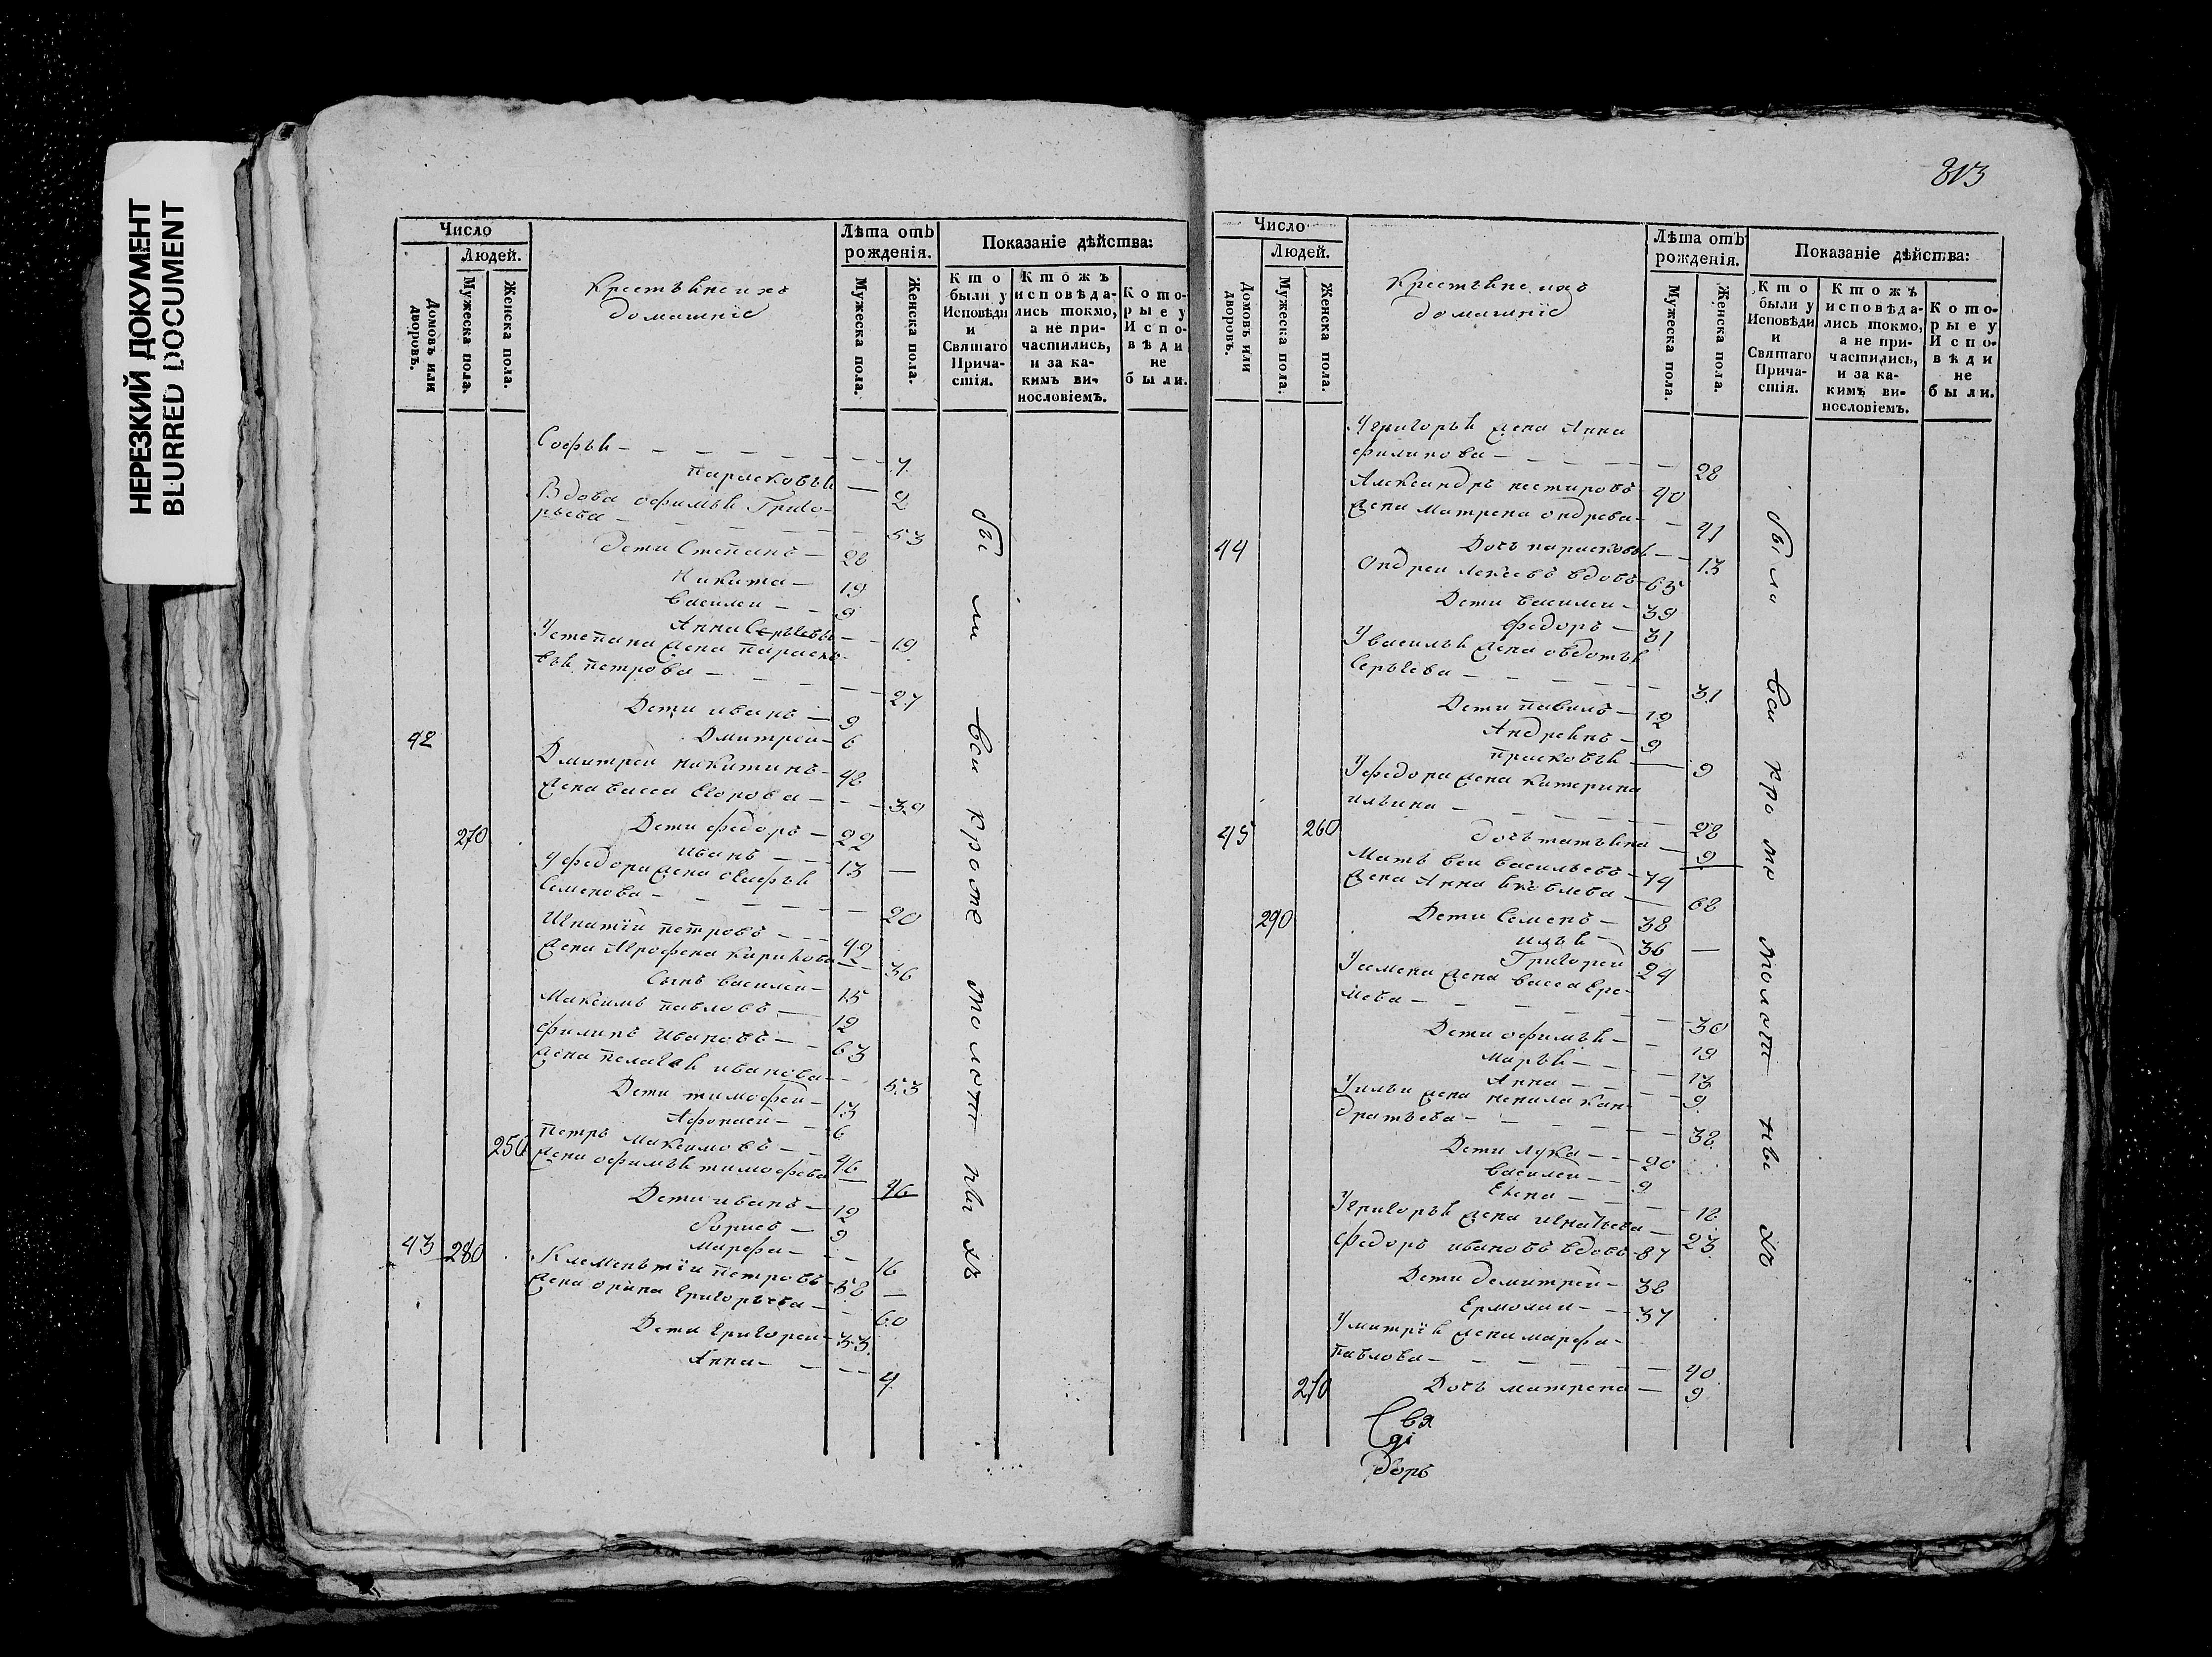 НЕРЕЗКИЙ ДОКУМЕНТ
BLURRED DOCUMENT
Число
Людей.
Домовъ или дворовъ.
Мужеска пола.
Женска пола.
Крестьяне ихъ
домашніе
Лѣта отъ рожденія.
Мужеска пола.
Женска пола.
Показаніе дѣйства:
Кто были у Исповѣди и Святаго Прича-стія.
Ктожъ исповѣда-лись токмо, а не при-частились, и за ка-кимъ ви-нословіемъ.
Кото-рые у Испо-вѣди не были.
Софья — 7
Парасковья — 2
Вдова офимья Григо-
рьева — 53
Дети Степанъ — 28
Никита — 19
Василеи — 9
Анна Сергѣева — 19
У степана жена параско-
вья петрова — 27
Дети иванъ — 9
Дмитреи — 6
42 Дмитреи никитинъ — 48
жена васса Егорова — 39
270 Дети федоръ — 22
иванъ — 13
У федора жена
Семенова — 20
Игнатіи петровъ — 42
жена Агрофена карпова — 36
Сынъ василеи — 15
Максимъ павловъ — 12
филипъ ивановъ — 63
жена пелагея иванова — 53
Дети тимофеи — 13
Афонаси — 6
250 петръ максимовъ — 46
жена офимья тимофеева — 46
Дети иванъ — 12
борисъ — 9
марфа — 16
43 280 Клементіи петровъ — 58
жена орина григорьева — 60
Дети григореи — 33
Анна — 4
бы ли вси кроме толоти ны хъ
813
Число
Людей.
Домовъ или дворовъ.
Мужеска пола.
Женска пола.
Крестьяне ихъ
домашніе
Лѣта отъ рожденія.
Мужеска пола.
Женска пола.
Показаніе дѣйства:
Кто были у Исповѣди и Святаго Прича-стія.
Ктожъ исповѣда-лись токмо, а не при-частились, и за ка-кимъ ви-нословіемъ.
Кото-рые у Испо-вѣди не были.
У григорья жена Анна
филипова — 28
Александръ нестировъ — 40
жена матрена ондрева — 41
Дочь парасковья — 13
44 Ондреи лексевъ вдовъ — 65
Дети василеи — 39
федоръ — 31
У василья жена овдотья
Сергѣева — 31
Дети павилъ — 12
Андреянъ — 9
прасковья — 9
У федора жена катерина
ильина — 28
260 дочь татьяна — 9
45 васильевъ — 74
жена Анна яковлева — 68
290 Дети Семенъ — 38
илья — 36
Григореи 24
У семена жена васса Ере-
меева — 36
Дети офимья — 19
марья — 13
Анна — 9
У ильи жена ненила кан-
дратьева — 38
Дети лука — 20
василеи — 9
Елена — 12
У григорья жена игнатьева — 23
федоръ ивановъ вдовъ — 87
Дети демитреи — 38
Ермолаи — 37
У митрія жена марфа
павлова — 40
270 Дочь матрена — 9
Свя
дворъ